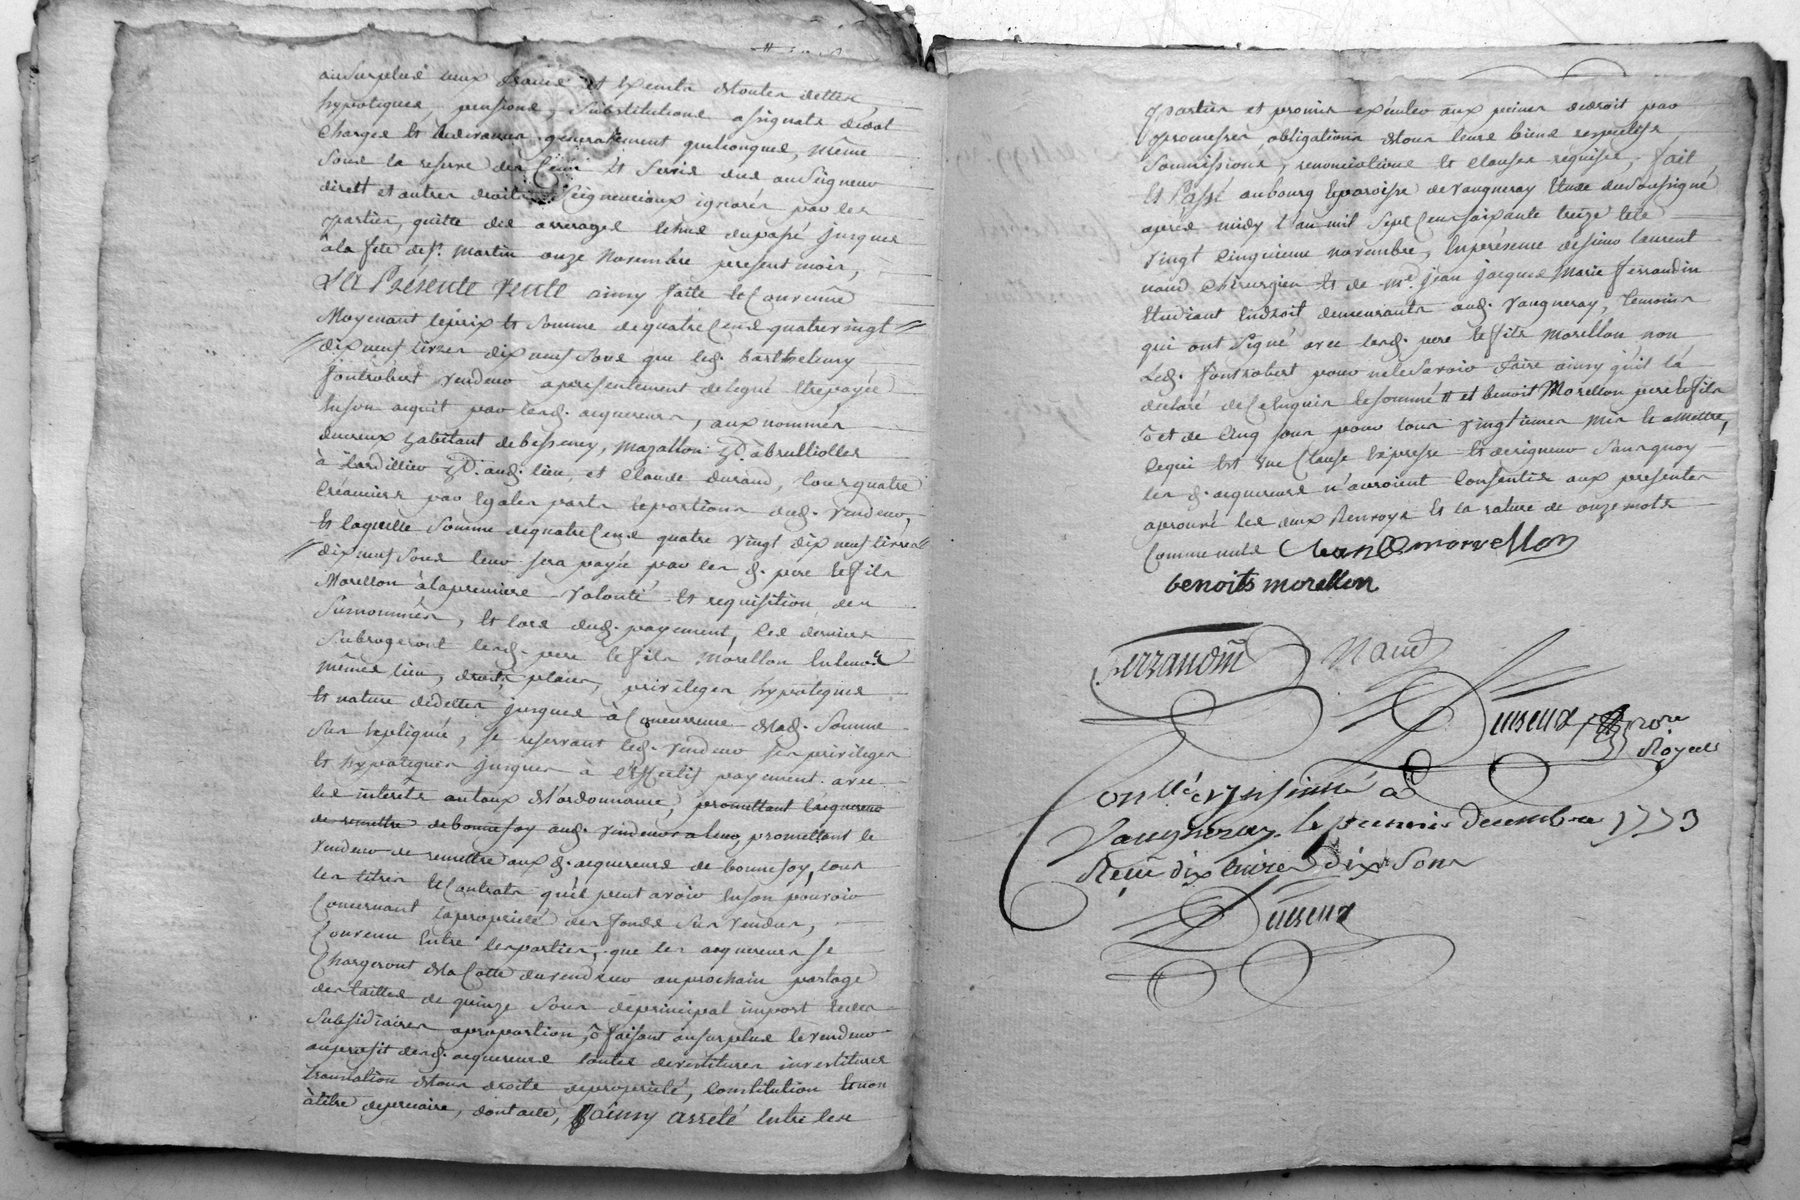 au surplus iceux francs et exempts de toutes dettes,
hypoteques, pensions, substitutions assignats de dot
charges et redevances generalement quelconques, même
sous la reserve des Cens et servis dus au Seigneur
direct et autres droits Seigneuriaux ignorés par les
parties, quitte des arrerages echus du passé jusques
à la fete de St. Martin onze Novembre present mois,
La Présente Vente ainsy faite et Convenüe
Moyenant le prix et Somme de quatre Cens quatre vingt
dix neuf livres dix neuf Sous que led. barthelemy
fontrobert vendeur a presentement delegué et repayée
en son acquit par lesd. acquereurs, aux nommés
habitant de bessenay, Magallon Id. à brulliolles
à Id. aud. lieu, et Claude durand, tous quatre
Créanciers par egales parts et portions dud. vendeur,
Et laquelle Somme de quatre Cens quatre vingt dix neuf livres
dix neuf Sous leur sera payée par les d. pere et fils
Morellon à la premiere volonté et requisition des
Surnommés, et lors dud. payement, les derniers
Subrogeront lesd. pere et fils Morellon en leurs
mêmes lieu, droits, places, privileges hypoteques
et nature de dettes jusques à Concurrence de lad. Somme
Sus expliquée, se reservant led. vendeur ses privileges
et hypoteques jusques à l'effectif payement avec
les interets au taux de l'ordonnance, promettant l'acquereur
de remettre de bonne foy aud. vendeur a leur, promettant le
vendeur de remettre aux d. acquereurs de bonne foy, tous
les titres et Contrats qu'il peut avoir en son pouvoir
Concernant la proprieté des fonds Sus vendus,
Convenu Entre les parties, que les acquereurs se
Chargeront de la Cotte du vendeur au prochain partage
des tailles de quinze Sous de principal import et des
Subsidiaires a proportion, õ faisant au surplus le vendeur
au profit desd. acquereurs toutes devetitures investitures
translation de tous droits de proprieté, Constitution et non
à titre de precaire, dont acte, ainsy arreté Entre les
parties et promis exécuter aux peines de droit par
promesses obligations de tous leurs biens respectifs
Soumissions, renonciations et clauses requises, fait
et Passé au bourg et paroisse de vaugneray Etude du Soussigné
apres midy l'an mil Sept Cens soixante treize et le
vingt Cinquieme novembre, En présence de sieur laurent
naud Chirurgien et de Me. jean jacques Marie ferrandin
Etudiant En droit demeurants aud. vaugneray, temoins
qui ont Signé avec lesd. pere et fils Morellon non
led. fontrobert pour ne le Savoir faire ainsy qu'il l'a
declaré de Ce Enquis et sommé # et benoit Morellon pere et fils
õ et de Cinq Sous pour tous vingtiemes mis a mettre,
Ce qui est une Clause Expresse et de rigueur Sans quoy
les d. acquereurs n'auroient Consentis aux presentes
aprouvé les deux Renvoys et la rature de onze mots
Comme nuls morellon
benoits morellon
ferrandin Naud
Duseux nore
Royal
Conllé et Insinué à
Vaugneray le premier Decembre 1773
Reçu dix livres dix Sous
Duseux